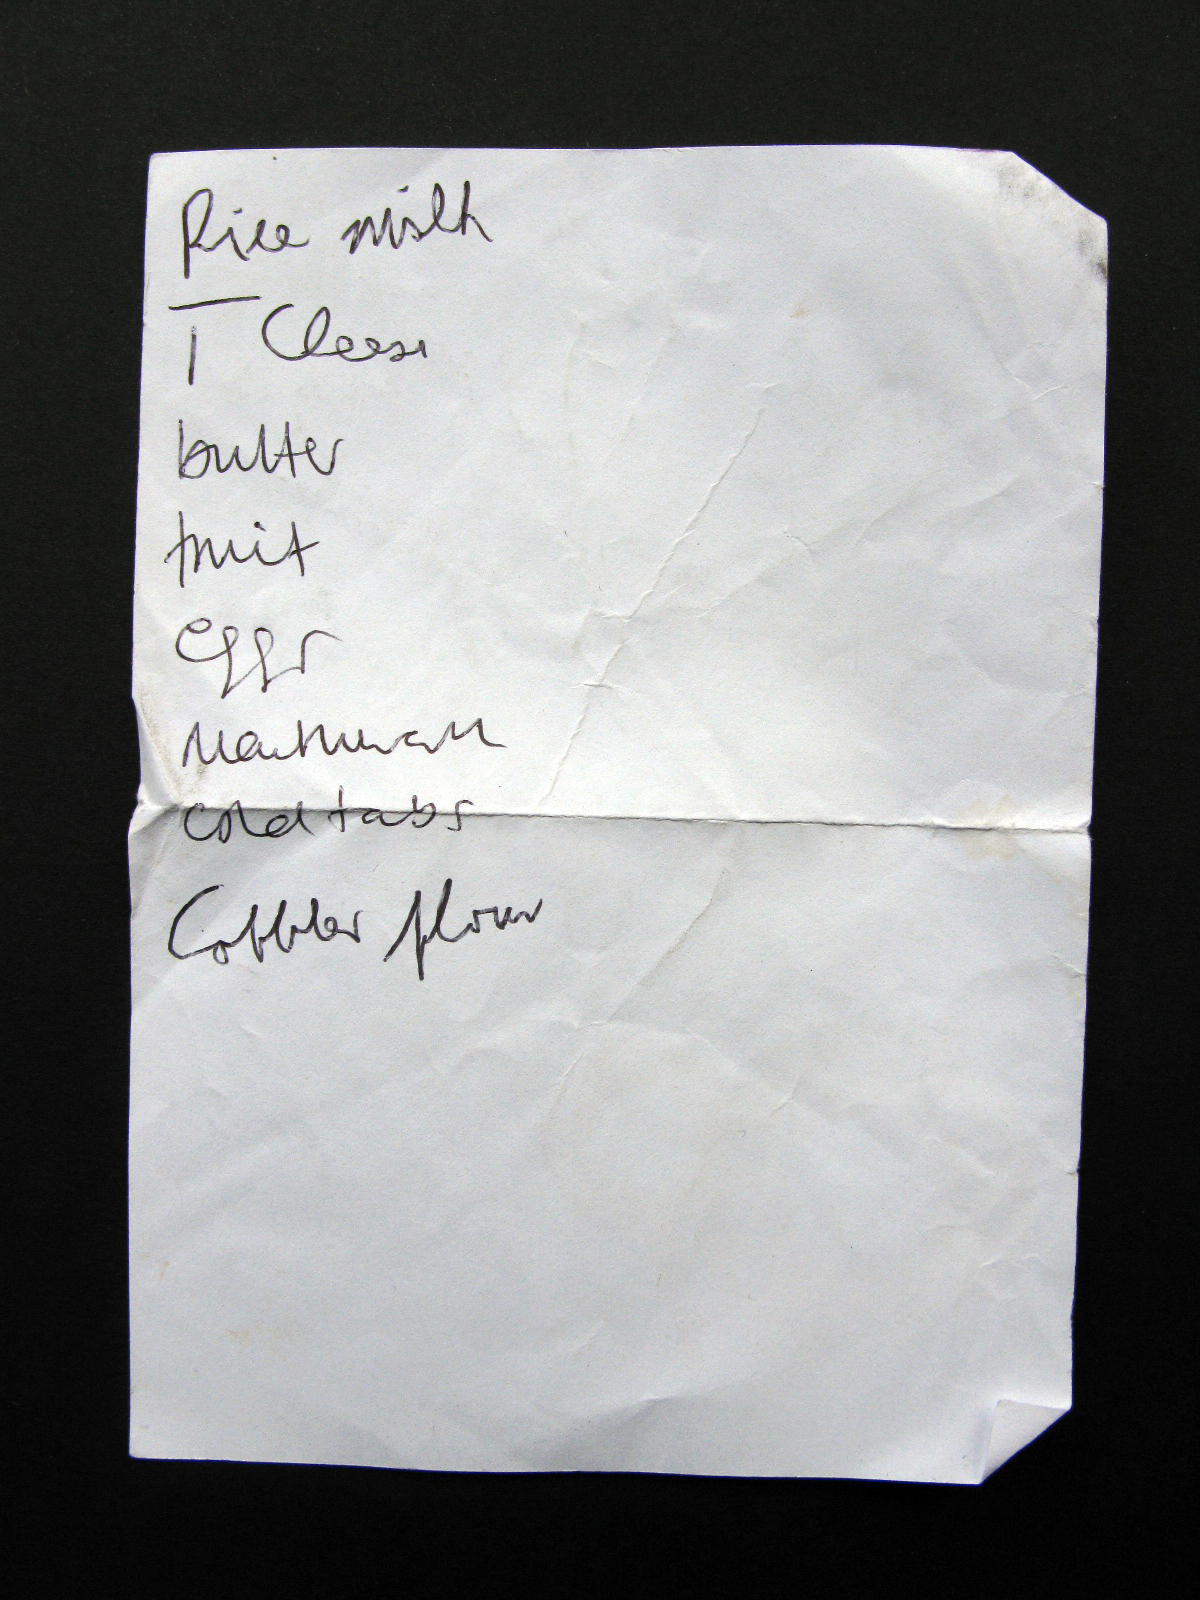 Rice milk
T Cheese
butter
fruit
eggs
cold tabs
Cobbler flour